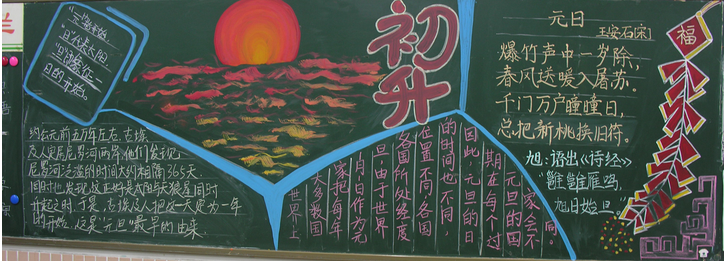 "元"表开始
"旦"代表太阳
日的开始。
初升
约公元前五万年左右,古埃
及人定居尼罗河两岸,他们发现
尼罗河泛滥的时间大约相隔365天,
同时也发现这正好是太阳与天狼星同时
升起之时。于是,古埃及人把这一天定为一年
的开始。这是"元旦"最早的由来。
世界上
大多数国
家把每年
1月1日作为元
旦,由于世界
各国所处经度
位置不同,各国
的时间也不同,
因此,元旦的日
期在每个过
元旦的国
家会不
同。
元日
王安石[宋]
爆竹声中一岁除,
春风送暖入屠苏。
千门万户曈曈日,
总把新桃换旧符。
旭:语出《诗经》
"雝雝雁鸣,
旭日始旦。"
福